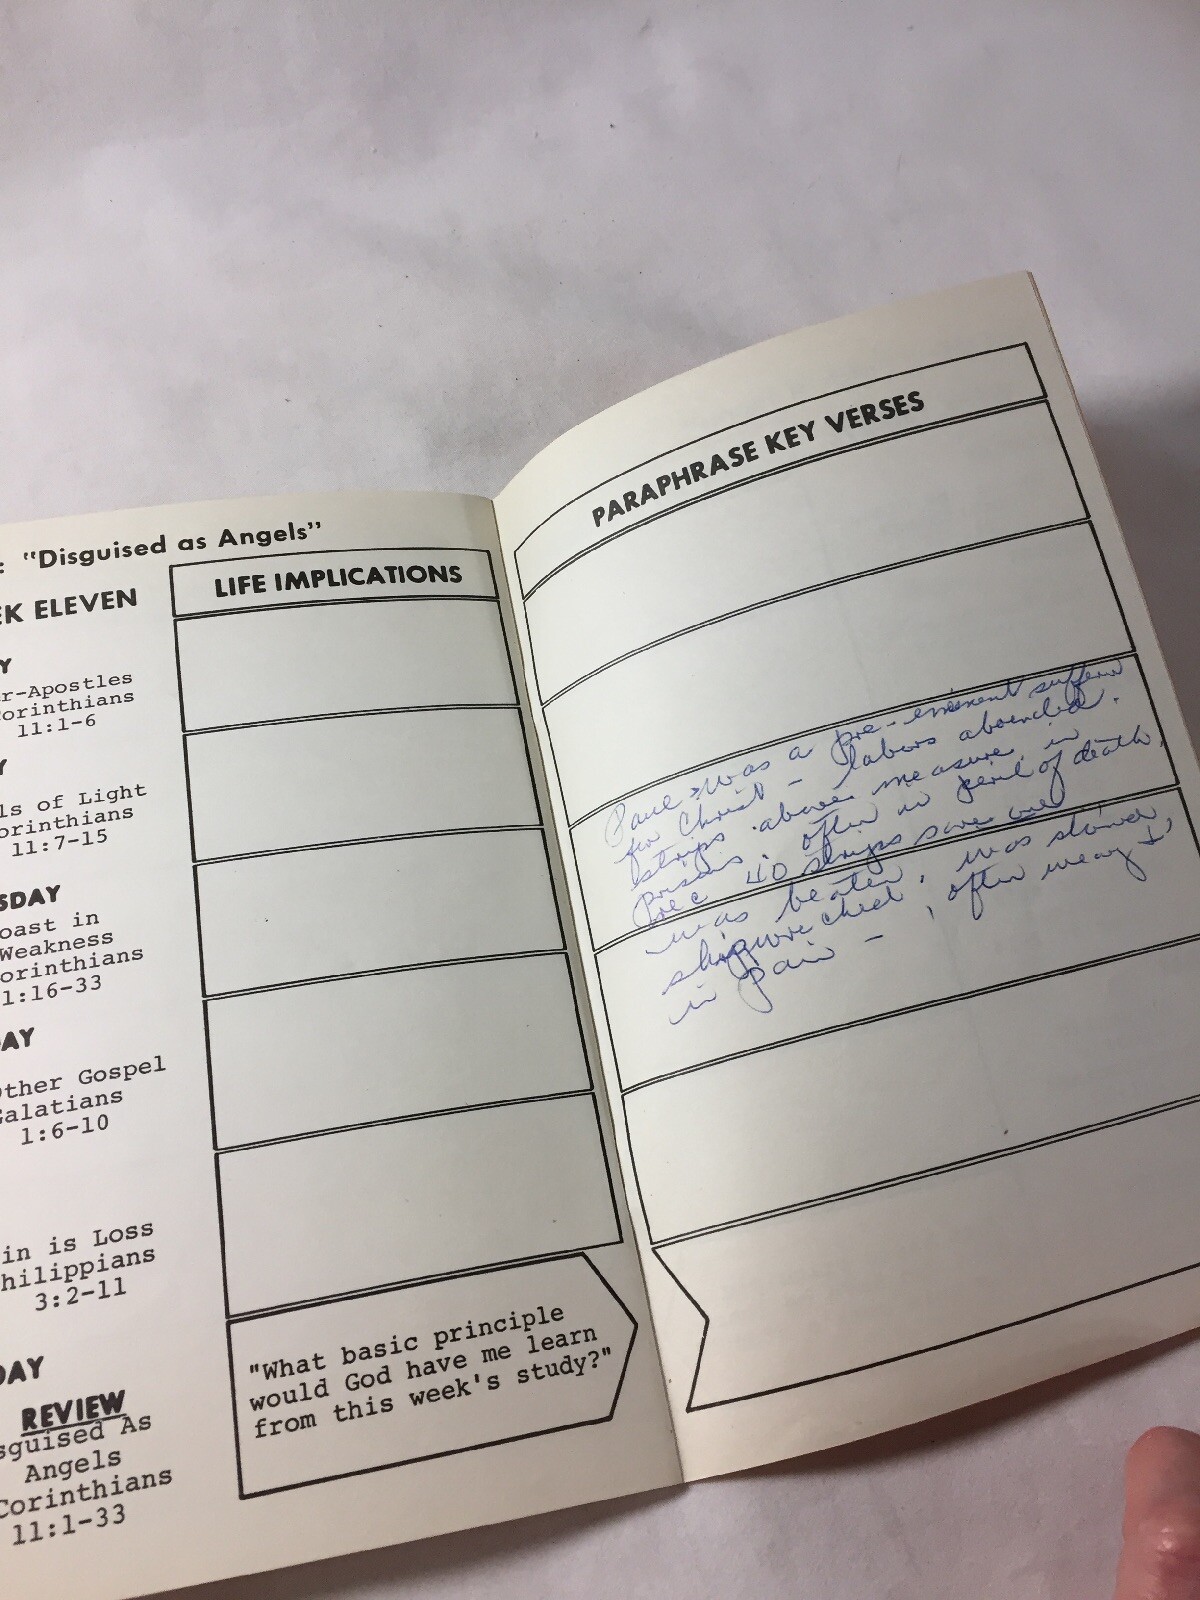 : "Disguised as Angels"
EK ELEVEN
Y
r-Apostles
orinthians
11:1-6
Y
ls of Light
orinthians
11:7-15
SDAY
oast in
Weakness
orinthians
1:16-33
AY
Other Gospel
Galatians
1:6-10
in is Loss
hilippians
3:2-11
DAY
REVIEW
sguised As
Angels
Corinthians
11:1-33
LIFE IMPLICATIONS
"What basic principle
would God have me learn
from this week's study?"
PARAPHRASE KEY VERSES
Paul was a pre-eminent
for Christ - labors abounded.
strips above measure, in
prisons, often in peril of death,
Rec 40 strips save one
was beaten, was stoned,
shipwrecked, often weary &
in pain -